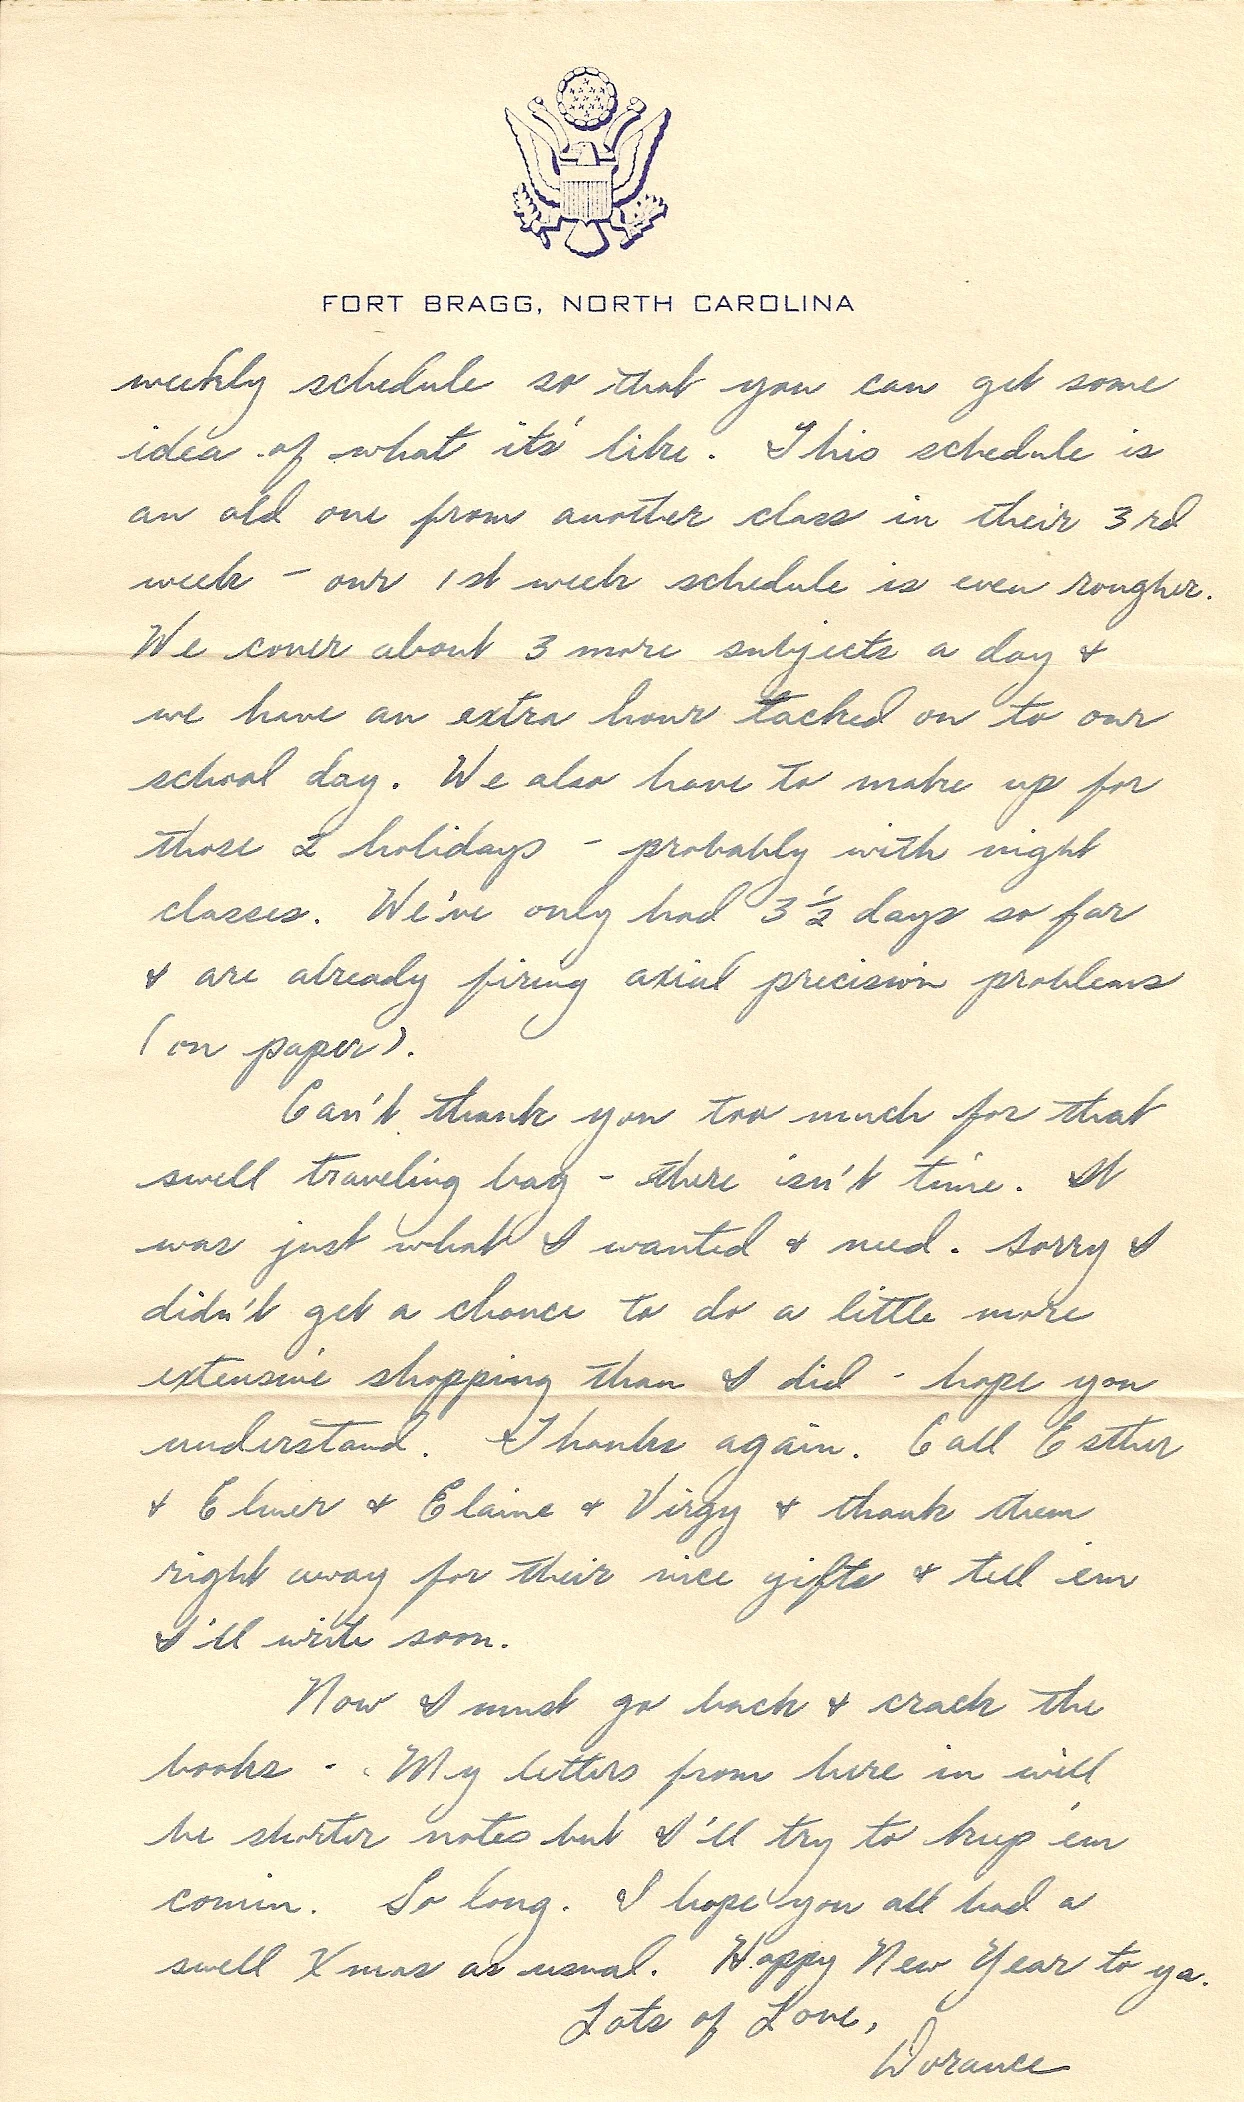 FORT BRAGG, NORTH CAROLINA
weekly schedule so that you can get some
idea of what its' like. This schedule is
an old one from another class in their 3rd
week - our 1st week schedule is even rougher.
We cover about 3 more subjects a day &
we have an extra hour tacked on to our
school day. We also have to make up for
those 2 holidays - probably with night
classes. We've only had 3 1/2 days so far
& are already firing axial precision problems
(on paper).
Can't thank you too much for that
swell traveling bag - there isn't time. It
was just what I wanted & need. Sorry I
didn't get a chance to do a little more
extensive shopping than I did - hope you
understand. Thanks again. Call Esther
& Elmer & Elaine & Virgy & thank them
right away for their nice gifts & tell 'em
I'll write soon.
Now I must go back & crack the
books - My letters from here in will
be shorter notes but I'll try to keep 'em
comin. So long. I hope you all had a
swell Xmas as usual. Happy New Year to ya.
Lots of Love,
Dorance